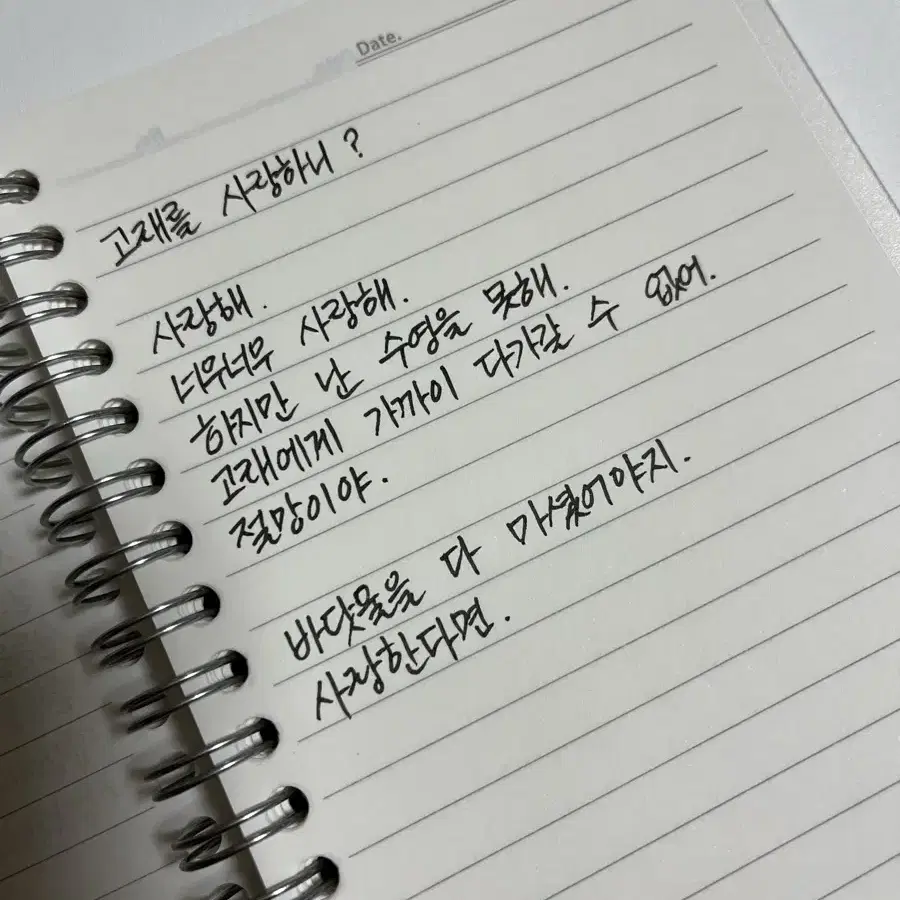 Date.
고래를 사랑하니?
사랑해.
너무너무 사랑해.
하지만 난 수영을 못해.
고래에게 가까이 다가갈 수 없어.
절망이야.
바닷물을 다 마셨어야지.
사랑한다면.